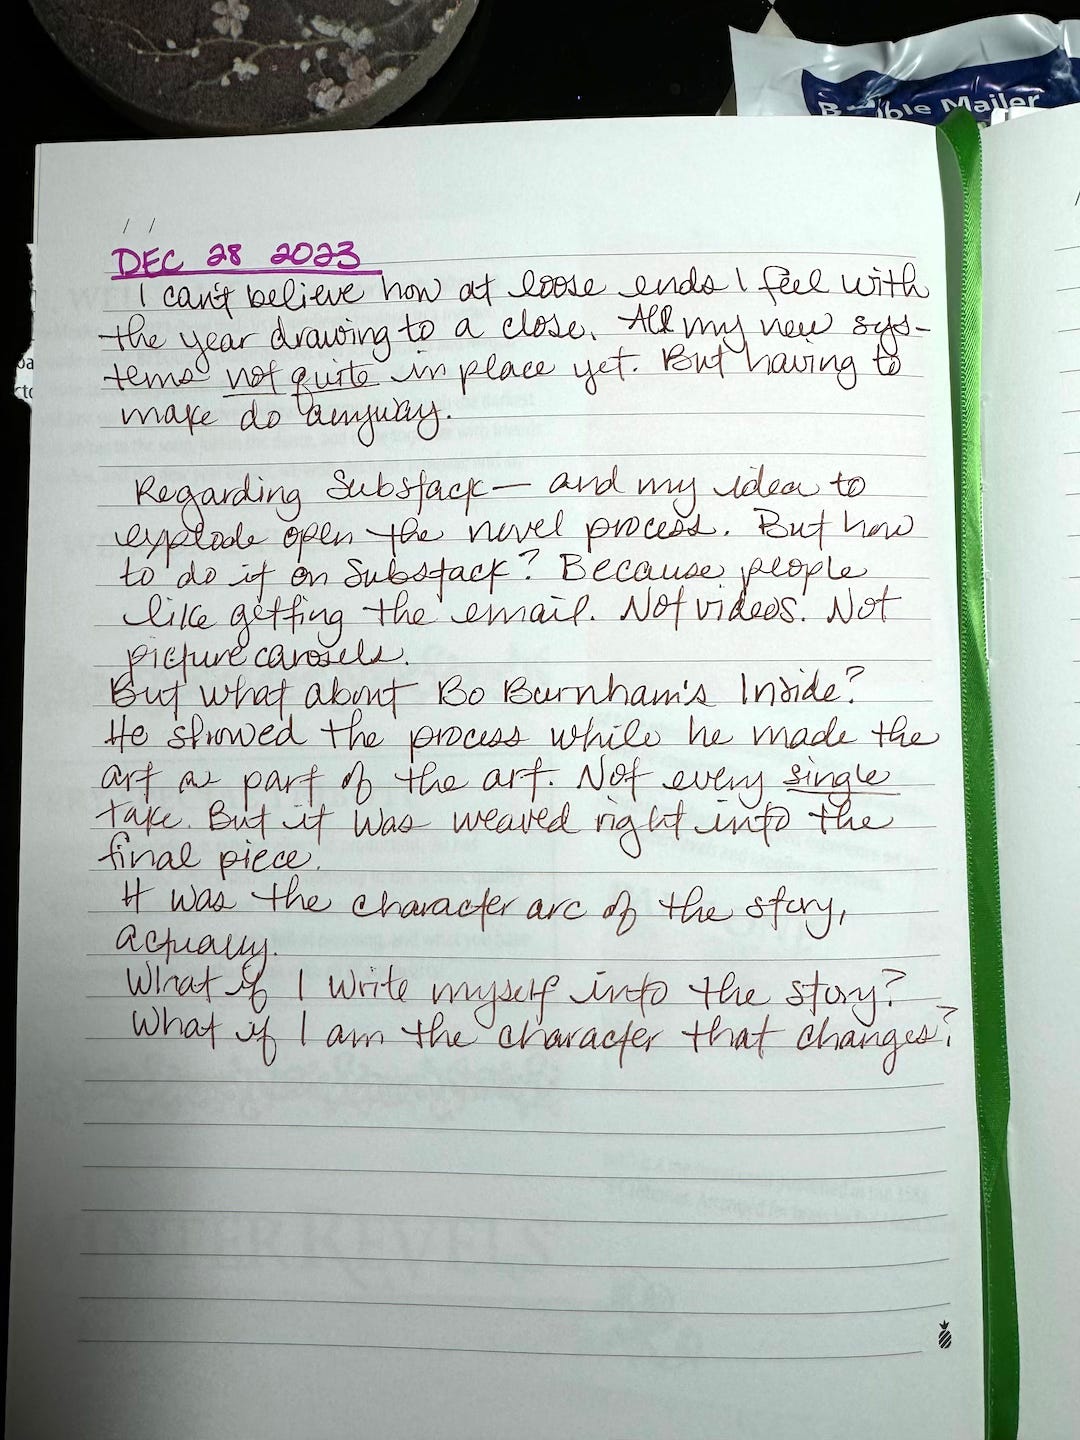 Bubble Mailer
/ /
DEC 28 2023
I can't believe how at loose ends I feel with
the year drawing to a close. All my new sys-
tems not quite in place yet. But having to
make do anyway.
Regarding Substack — and my idea to
explode open the novel process. But how
to do it on Substack? Because people
like getting the email. Not videos. Not
picture carosels.
But what about Bo Burnham's Inside?
He showed the process while he made the
art as part of the art. Not every single
take. But it was weaved right into the
final piece.
It was the character arc of the story,
actually.
What if I write myself into the story?
What if I am the character that changes?